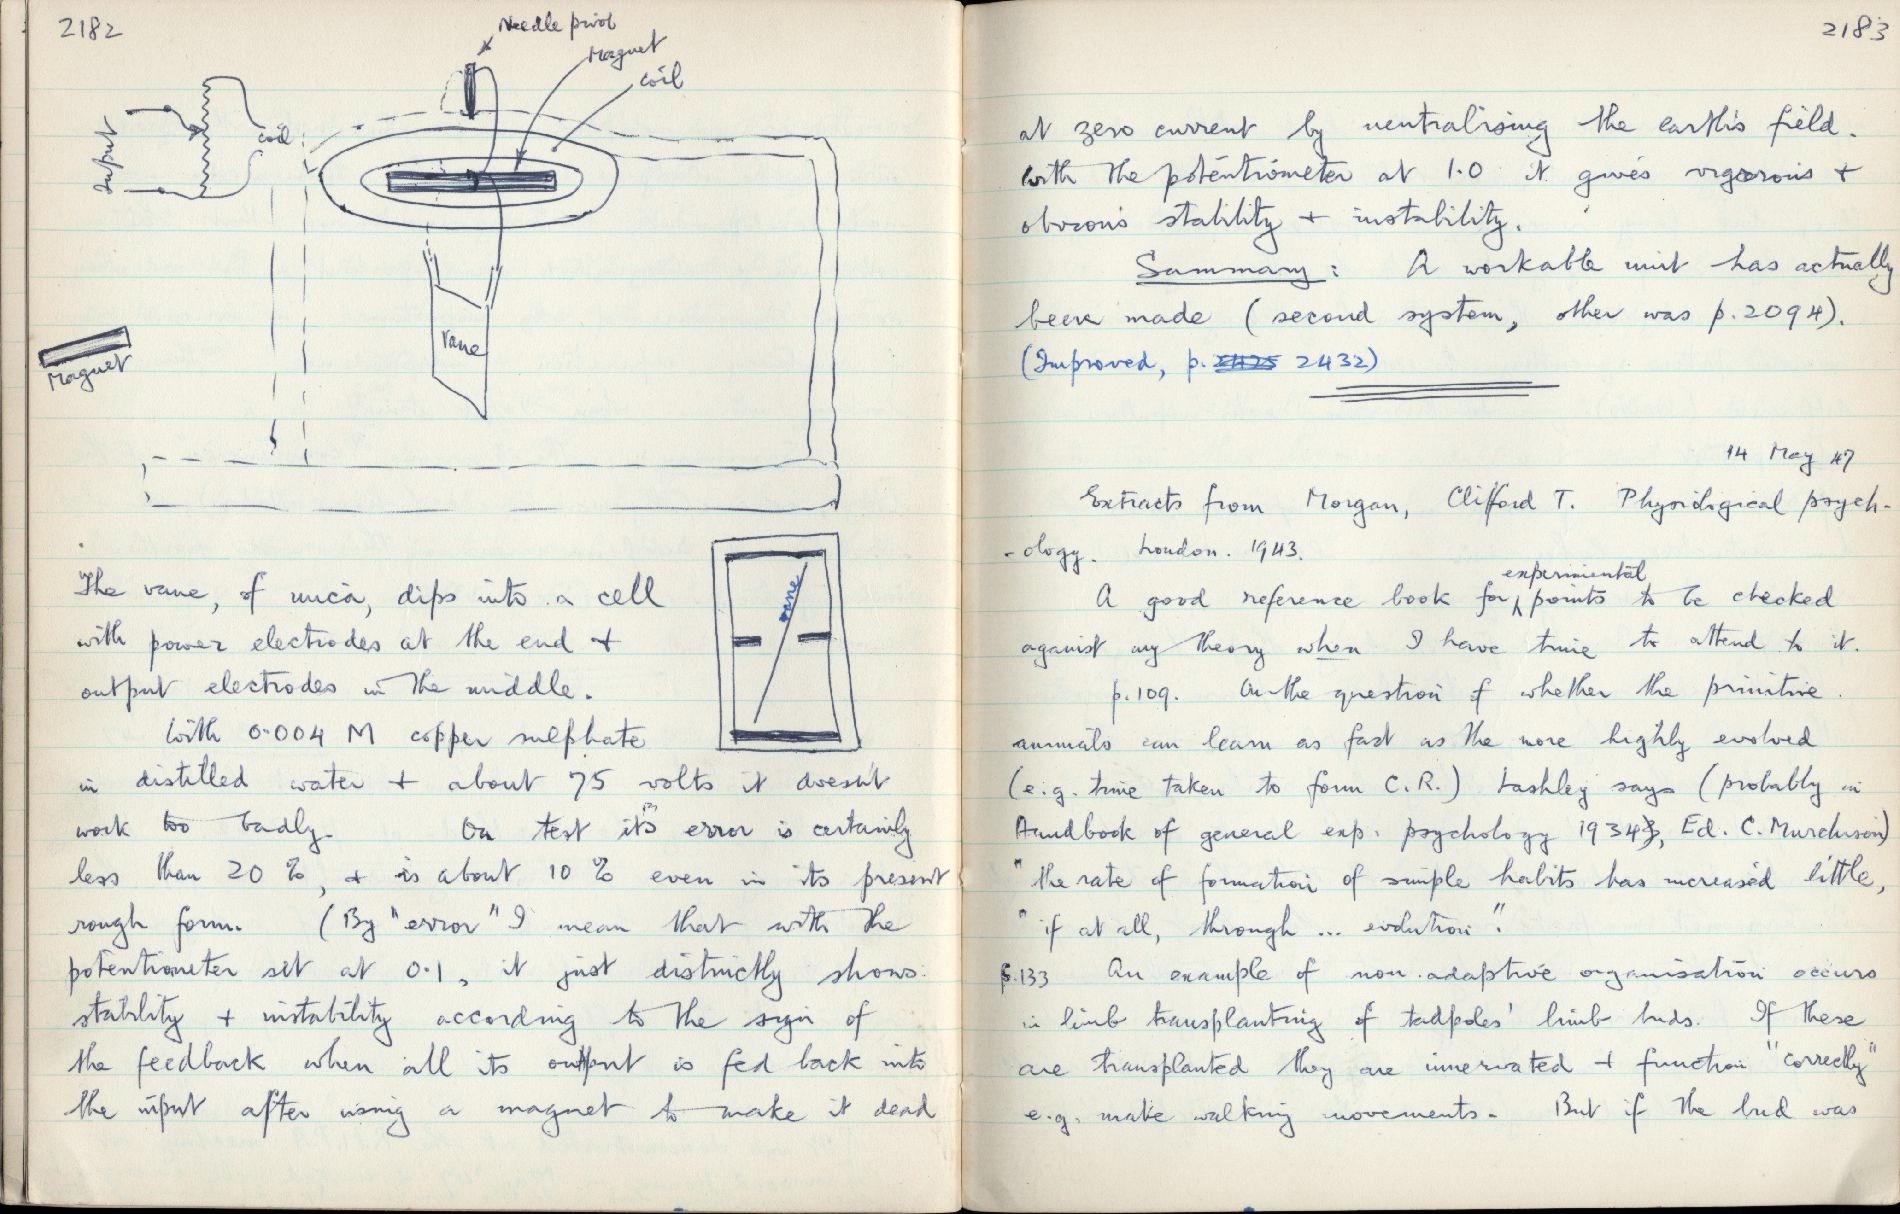 2182
Needle pivot
Magnet
coil
Input
coil
Vane
Magnet
vane
The vane, of mica, dips into a cell
with power electrodes at the end +
output electrodes in the middle.
With 0.004 M copper sulphate
in distilled water + about 75 volts it doesn't
work too badly. On test its error is certainly
less than 20 %, + is about 10 % even in its present
rough form. (By "error" I mean that with the
potentiometer set at 0.1, it just distinctly shows
stability + instability according to the sign of
the feedback when all its output is fed back into
the input after using a magnet to make it dead
2183
at zero current by neutralising the earth's field.
With the potentiometer at 1.0 it gives vigorous +
obvious stability + instability.
Summary: A workable unit has actually
been made (second system, other was p.2094).
(Improved, p. 2425 2432)
14 May 47
Extracts from Morgan, Clifford T. Physiological psych-
-ology. London. 1943.
experimental
A good reference book for points to be checked
against my theory when I have time to attend to it.
p.109. On the question of whether the primitive
animals can learn as fast as the more highly evolved
(e.g. time taken to form C.R.) Lashley says (probably in
Handbook of general exp. psychology 1934, Ed. C. Murchison)
"the rate of formation of simple habits has increased little,
"if at all, through ... evolution".
p.133 An example of non-adaptive organisation occurs
in limb transplanting of tadpoles' limb buds. If these
are transplanted they are innervated + function "correctly"
e.g. make walking movements. But if the bud was